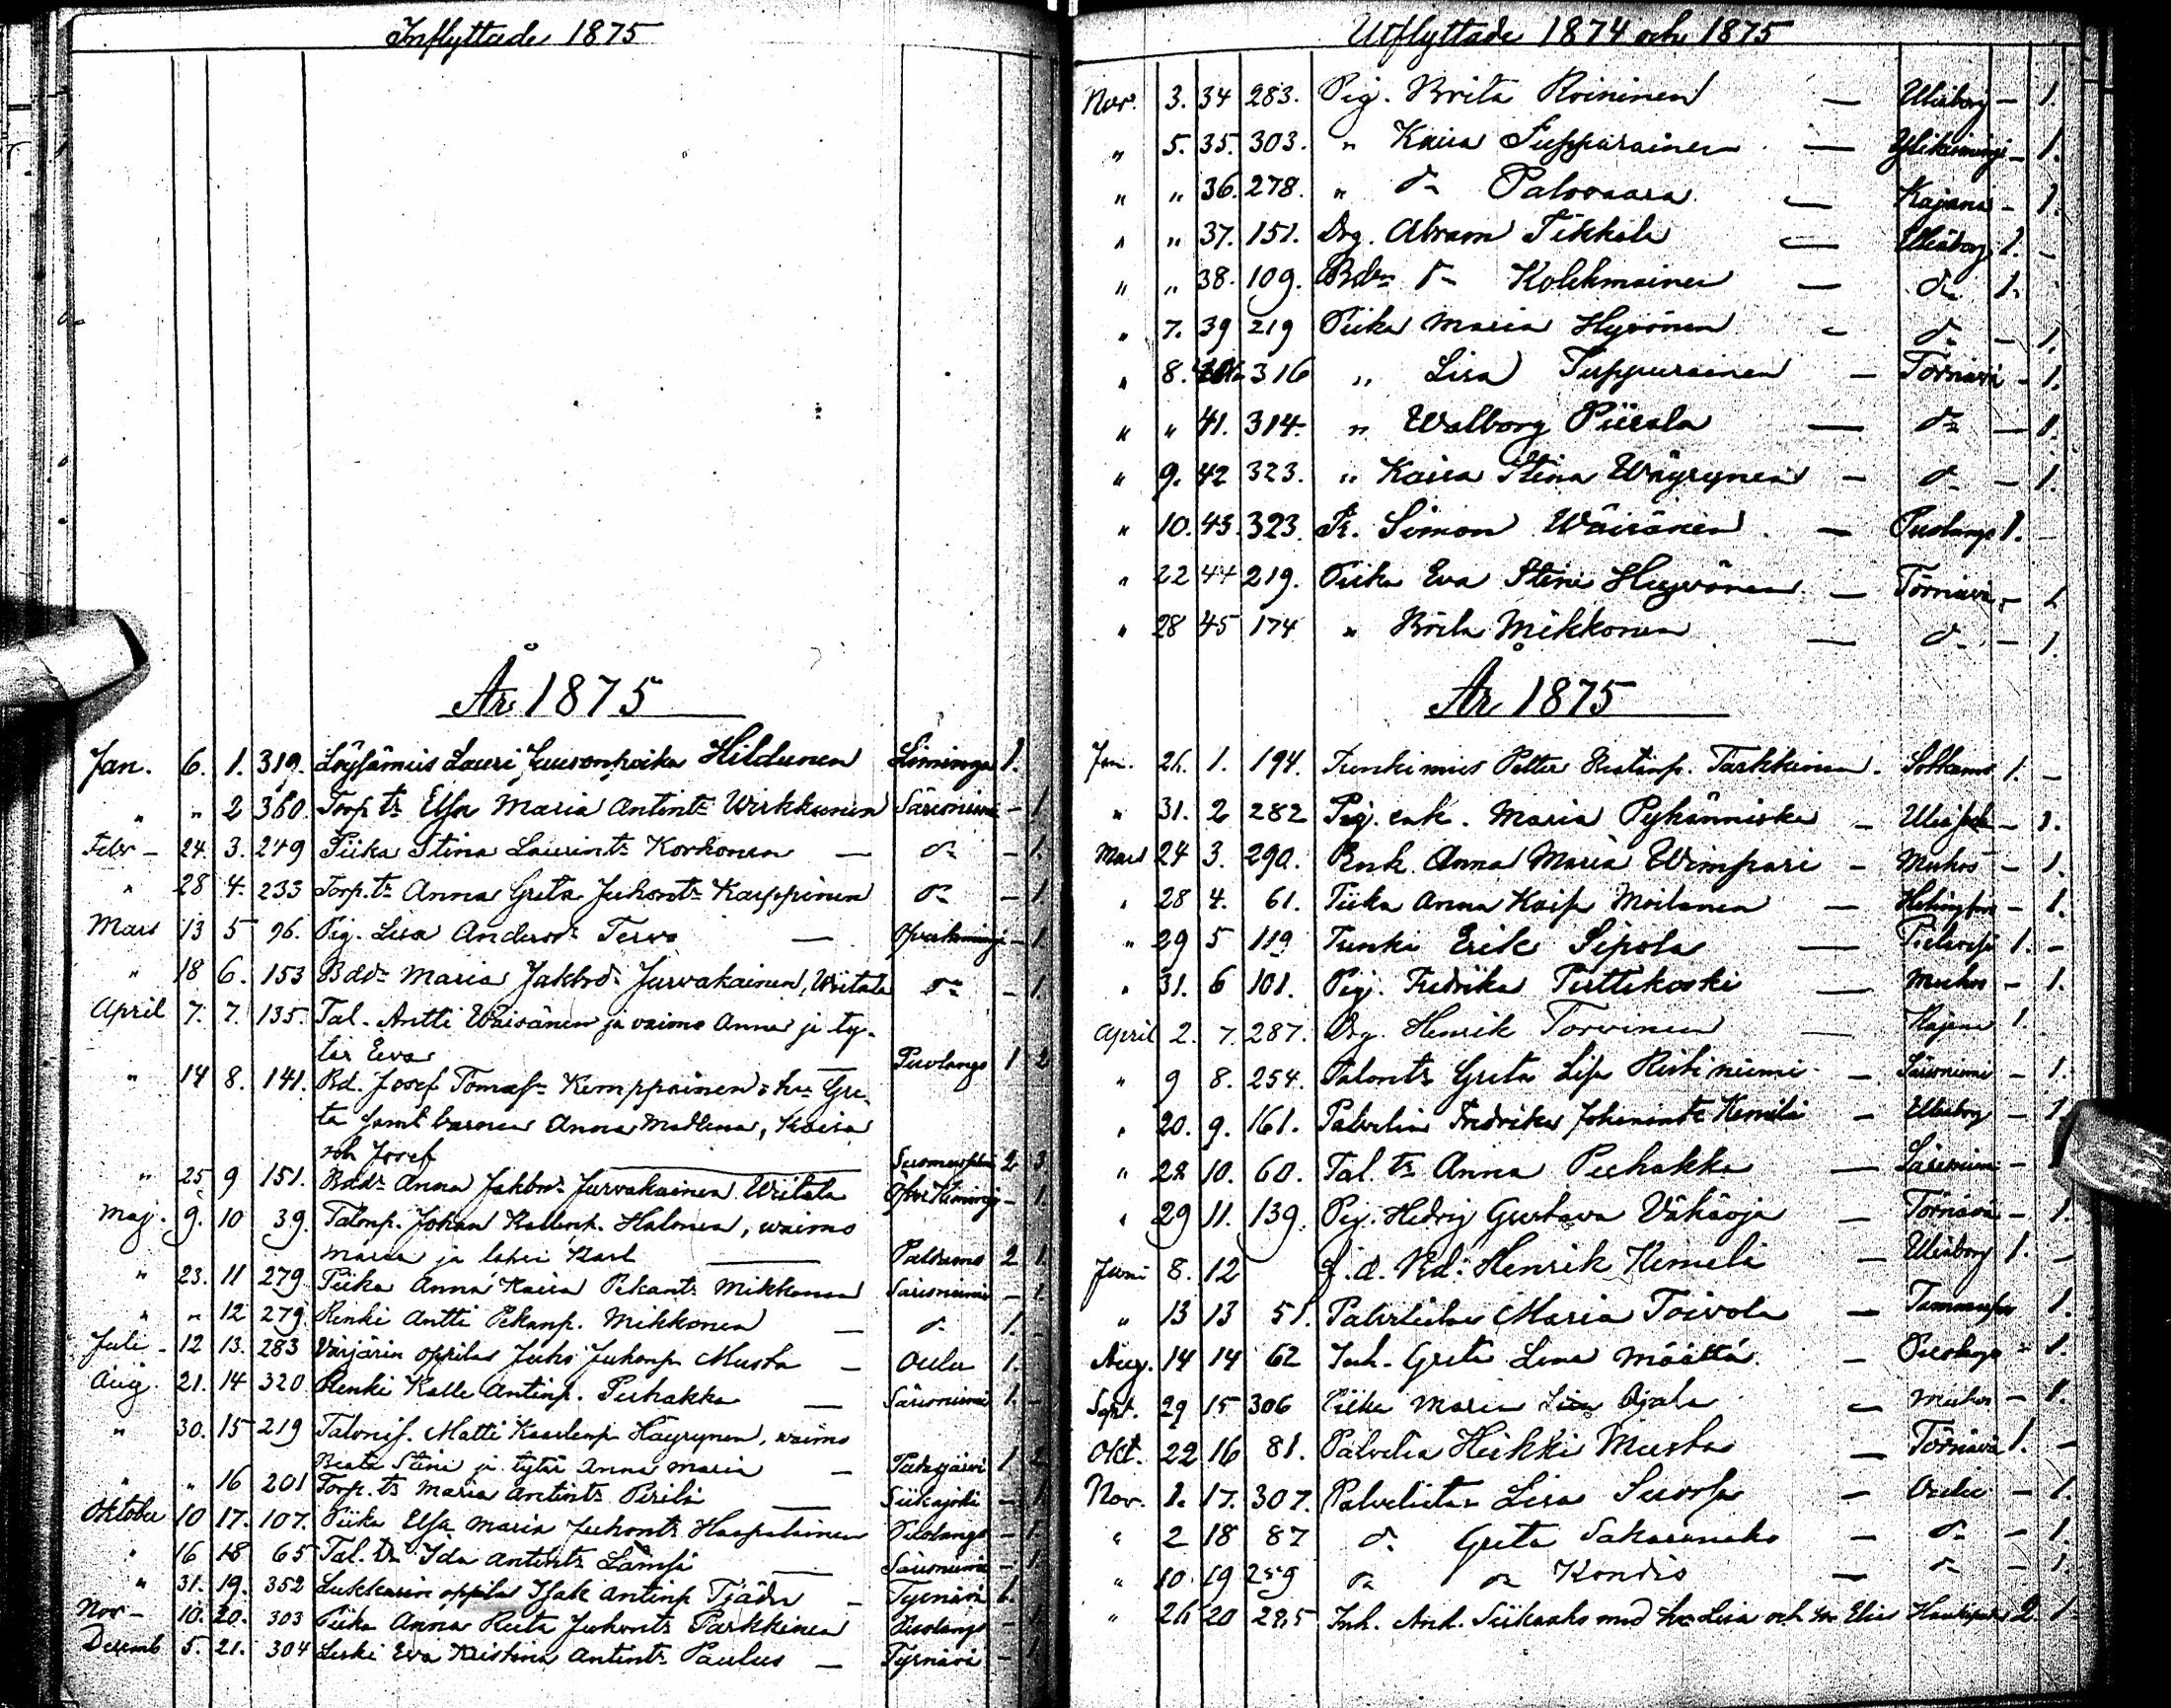 Inflyttade 1875
År 1875
Jan. 6. 1. 319. Löysämies Lauri Juusonpoika Hildunen Liminga 1.
" " 2 360. Torp. tr Elsa Maria Antintr Wirkkunen Säresniemi - 1.
Febr - 24. 3. 249 Piika Stina Laurintr Korhonen — do - 1.
" 28 4. 233 Torp. tr Anna Greta Juhontr Karppinen do - 1.
Mars 13 5 96. Pig. Lisa Andersdr Tervo — - 1.
" 18 6. 153 Bddr Maria Jakobsdr Jurvakainen, Writala do - 1.
April 7. 7. 135. Tal. Antti Wäisänen ja vaimo Anna ja ty-
tär Eva Puolango 1 2
" 14 8. 141. Bd. Josef Tomass. Kemppainen, hu Gre-
ta samt barnen Anna Madlena, Kaisa
och Josef 2 3
" 25 9 151. Bddr Anna Jakobsdr Jurvakainen Writala Öfver Kiminge - 1.
Maj. 9. 10 39. Talonp. Johan Kallenp. Halonen, waimo
Maria ja lapsi Karl — Paldamo 2 1
" 23. 11 279 Piika Anna Kaisa Pekantr Mikkonen Säresniemi - 1.
" " 12 279 Renki Antti Pekanp. Mikkonen — do 1. -
Juli - 12 13. 283 Värjärin oppilas Juho Juhonp. Musta — Oulu 1.
Aug. 21. 14 320 Renki Kalle Antinp. Puhakka — Säresniemi 1. -
" 30. 15 219 Talonis. Matti Kaarlenp. Häyrynen, waimo
Beata Stina ja tytär Anna Maria — 1 2
" " 16 201 Torp. tr Maria Antintr Perilä — Siikajoki - 1
Oktober 10 17. 107. Piika Elsa Maria Juhontr Haapalainen Puolango - 1.
" 16 18 65 Tal. tr Ida Antintr Lämsä — Säresniemi - 1.
" 31. 19. 352 Lukkarin oppilas Isak Antinp Tjäder — Tyrnävä 1.
Nov - 10. 20. 303 Piika Anna Reeta Juhontr Parkkinen Puolango - 1
Decemb 5. 21. 304 Leski Eva Kristina Antintr Paulus — Tyrnävä - 1
Utflyttade 1874 och 1875
Nov. 3. 34 283. Pig. Brita Roininen — Uleåborg - 1.
" 5. 35. 303. " Kaisa Tuppurainen — Ylikiiminge - 1.
" " 36. 278. " do Palovaara — Kajana - 1.
" " 37. 151. Drg. Abram Tikkala — Uleåborg 1. -
" " 38. 109. Bdsn do Kolehmainen — do 1.
" 7. 39 219 Piika Maria Hyvönen - do - 1.
" 8. 316 " Lisa Tuppurainen — Törnävä - 1.
" " 41. 314. " Walborg Piirala — do — 1.
" 9. 42 323. " Kaisa Stina Wäyrynen - do - 1.
" 10. 43. 323. R. Simon Wäisänen. — Puolango 1. -
" 22 44 219. Piika Eva Stina Hyyvönen — Törnävä - 1
" 28 45 174 " Brita Mikkonen — do - 1.
År 1875
Jan. 26. 1. 194. Petter Tarkkinen. Sotkamo 1. -
" 31. 2 282 Pig. enk. Maria Pyhänniska - - 1.
Mars 24 3. 290. Enk. Anna Maria Wimpari - Muhos - 1.
" 28 4. 61. Piika Anna Kaisa Moilanen — Helsingfors - 1.
" 29 5 119 Erik Sipola — 1. -
" 31. 6 101. Pig. Fredrika Perttikoski — Muhos - 1.
April 2. 7. 287. Drg. Henrik Torvinen — Kajana 1.
" 9 8. 254. Talontr Greta Lisa Ristiniemi — Säresniemi - 1.
" 20. 9. 161. Palvelia Fredrika Kemilä - Uleåborg - 1.
" 28 10. 60. Tal. tr Anna Puhakka — Säresniemi - 1
" 29 11. 139. Pig. Hedvig Gustava Vähäoja — Törnävä - 1.
Juni 8. 12 Henrik Kemelä — Uleåborg 1. -
" 13 13 51. Palvelias Maria Toivola — Tammerfors 1.
Aug. 14 14 62 Inh. Greta Lena Määttä. - Puolango - 1.
Sept. 29 15 306 Piika Maria Lisa Ojala - Muhos - 1.
Okt. 22 16 81. Palvelia Heikki Musta — Törnävä 1. -
Nov. 1. 17. 307. Palvelias Lisa — Oulu - 1.
" 2 18 87 do Greta Sakarinaho — do - 1.
" 10 19 259 do do Kondio — do - 1.
" 26 20 285 Inh. And. Siikaaho med hu Lisa och son Elias Haukipudas 2. 1.